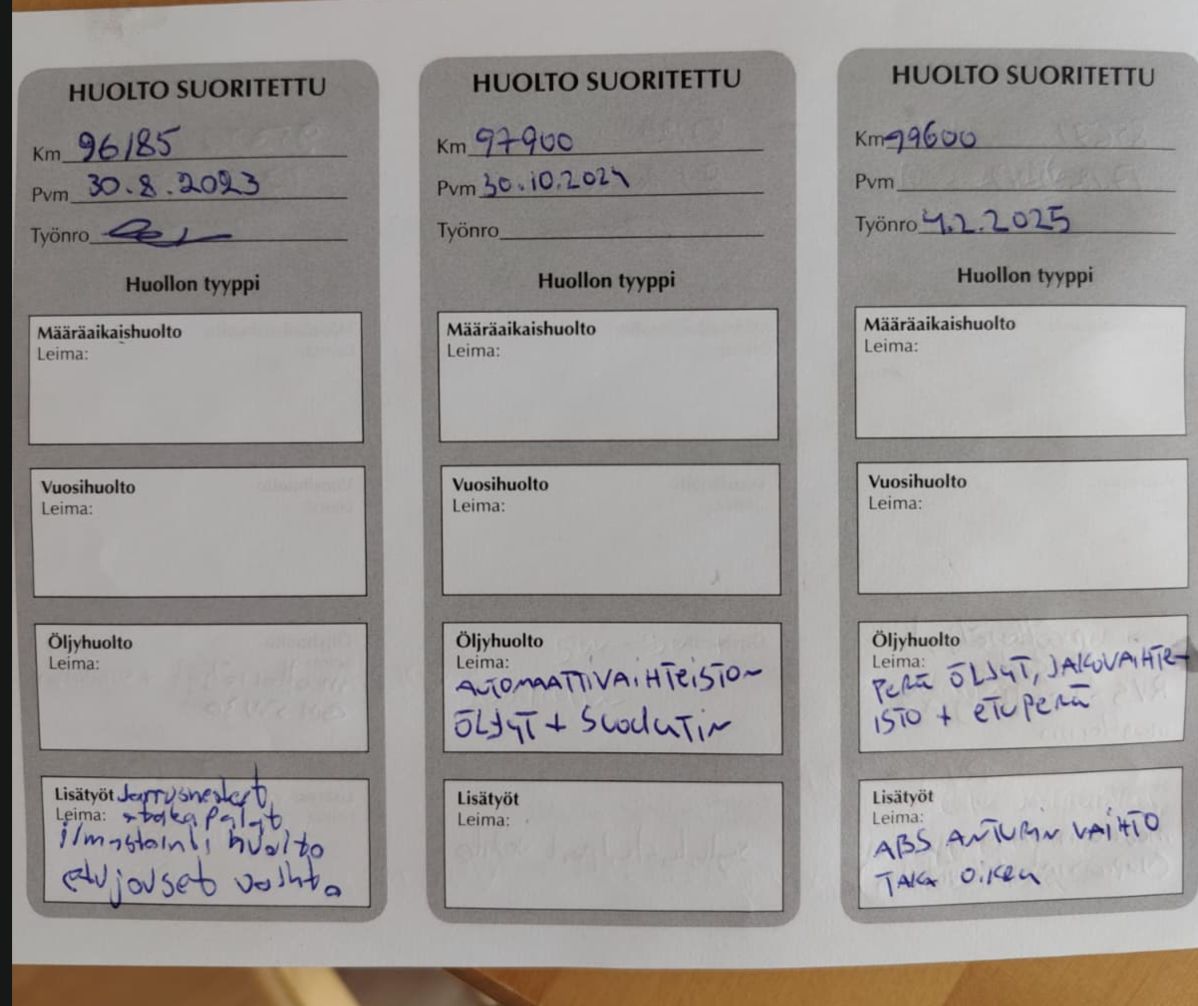 HUOLTO SUORITETTU
Km 96185
Pvm 30.8.2023
Työnro
Huollon tyyppi
Määräaikaishuolto
Leima:
Vuosihuolto
Leima:
Öljyhuolto
Leima:
Lisätyöt Jarrunesteet,
Leima: + takapalat,
ilmastointi huolto
etujouset vaihto
HUOLTO SUORITETTU
Km 97900
Pvm 30.10.2024
Työnro
Huollon tyyppi
Määräaikaishuolto
Leima:
Vuosihuolto
Leima:
Öljyhuolto
Leima:
AUTOMAATTIVAIHTEISTON
ÖLJYT + SUODATIN
Lisätyöt
Leima:
HUOLTO SUORITETTU
Km 99600
Pvm
Työnro 4.2.2025
Huollon tyyppi
Määräaikaishuolto
Leima:
Vuosihuolto
Leima:
Öljyhuolto
Leima:
PERÄ ÖLJYT, JAKOVAIHTE-
ISTO + ETUPERÄ
Lisätyöt
Leima:
ABS ANTURIN VAIHTO
TAKA OIKEA